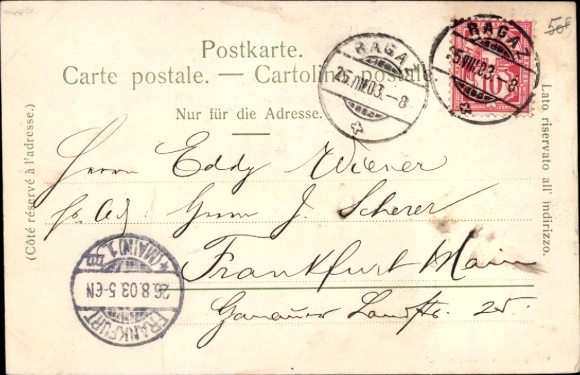 Postkarte.
Carte postale. — Cartolina postale.
Nur für die Adresse.
(Côté réservé à l'adresse.)
Lato riservato all' indirizzo.
RAGAZ
25.VIII.03.–8
RAGAZ
25.VIII.03.–8
10
Herrn Eddy Wiener
J. Scherer
Frankfurt Main
Landstr. 25.
FRANKFURT
26.8.03.5-6N
*(MAIN)1